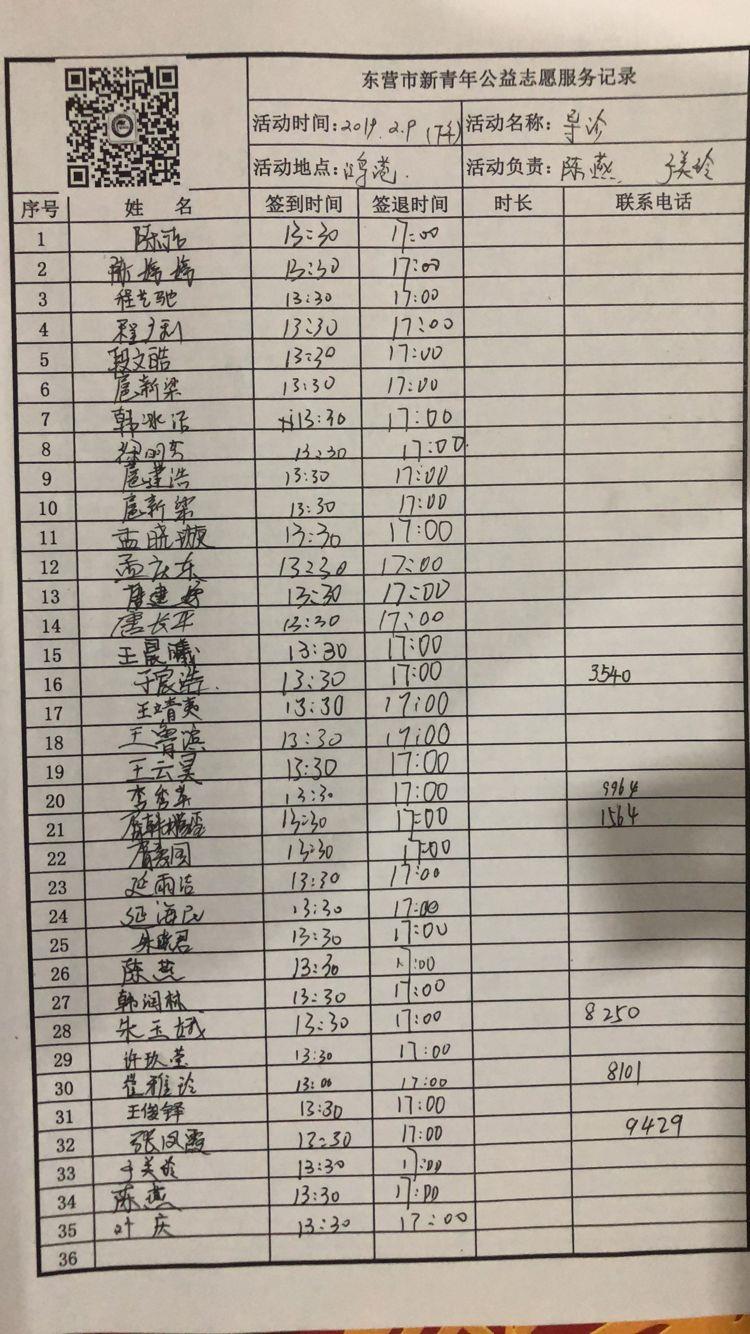 东营市新青年公益志愿服务记录
活动时间: 2019.2.9 (下午) 活动名称: 导诊
活动地点: 活动负责: 陈燕 于美玲
序号 姓 名 签到时间 签退时间 时长 联系电话
1 13:30 17:00
2 13:30 17:00
3 程艺驰 13:30 17:00
4 13:30 17:00
5 段文皓 13:30 17:00
6 扈新梁 13:30 17:00
7 韩冰洁 13:30 17:00
8 13:30 17:00
9 扈建浩 13:30 17:00
10 扈新梁 13:30 17:00
11 孟晓璇 13:30 17:00
12 孟庆东 13:30 17:00
13 13:30 17:00
14 唐长平 13:30 17:00
15 王晨曦 13:30 17:00
16 于宸浩 13:30 17:00 3540
17 王靖夷 13:30 17:00
18 王鲁滨 13:30 17:00
19 王云昊 13:30 17:00
20 13:30 17:00 9964
21 13:30 17:00 1564
22 13:30 17:00
23 延雨洁 13:30 17:00
24 延海民 13:30 17:00
25 朱晓君 13:30 17:00
26 陈燕 13:30 17:00
27 韩润林 13:30 17:00
28 朱玉娥 13:30 17:00 8250
29 许玖莹 13:30 17:00
30 崔雅玲 13:00 17:00 8101
31 王俊铎 13:30 17:00
32 张凤霞 13:30 17:00 9429
33 于美玲 13:30 17:00
34 陈燕 13:30 17:00
35 叶庆 13:30 17:00
36